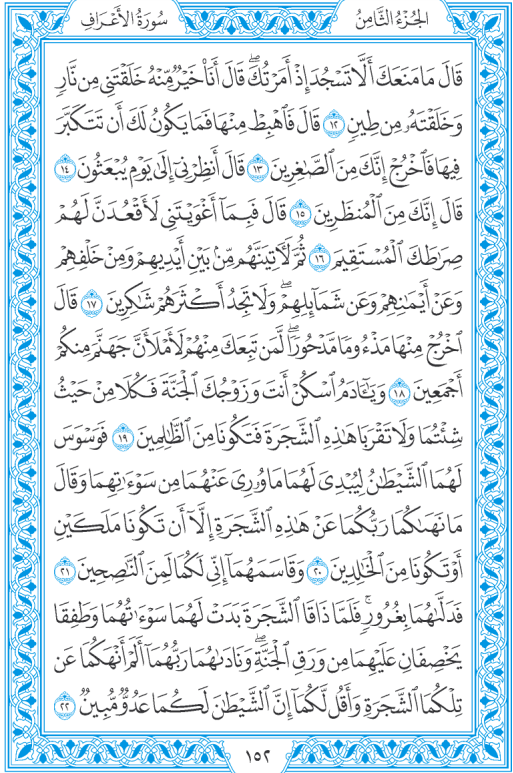 الجُزْءُ الثَّامِنُ سُورَةُ الأَعْرَافِ
قَالَ مَا مَنَعَكَ أَلَّا تَسْجُدَ إِذْ أَمَرْتُكَۖ قَالَ أَنَا۠ خَيْرٌ مِّنْهُ خَلَقْتَنِى مِن نَّارٍ
وَخَلَقْتَهُۥ مِن طِينٍ ١٢ قَالَ فَٱهْبِطْ مِنْهَا فَمَا يَكُونُ لَكَ أَن تَتَكَبَّرَ
فِيهَا فَٱخْرُجْ إِنَّكَ مِنَ ٱلصَّٰغِرِينَ ١٣ قَالَ أَنظِرْنِىٓ إِلَىٰ يَوْمِ يُبْعَثُونَ ١٤
قَالَ إِنَّكَ مِنَ ٱلْمُنظَرِينَ ١٥ قَالَ فَبِمَآ أَغْوَيْتَنِى لَأَقْعُدَنَّ لَهُمْ
صِرَٰطَكَ ٱلْمُسْتَقِيمَ ١٦ ثُمَّ لَءَاتِيَنَّهُم مِّنۢ بَيْنِ أَيْدِيهِمْ وَمِنْ خَلْفِهِمْ
وَعَنْ أَيْمَٰنِهِمْ وَعَن شَمَآئِلِهِمْۖ وَلَا تَجِدُ أَكْثَرَهُمْ شَٰكِرِينَ ١٧ قَالَ
ٱخْرُجْ مِنْهَا مَذْءُومًا مَّدْحُورًاۖ لَّمَن تَبِعَكَ مِنْهُمْ لَأَمْلَأَنَّ جَهَنَّمَ مِنكُمْ
أَجْمَعِينَ ١٨ وَيَٰٓـَٔادَمُ ٱسْكُنْ أَنتَ وَزَوْجُكَ ٱلْجَنَّةَ فَكُلَا مِنْ حَيْثُ
شِئْتُمَا وَلَا تَقْرَبَا هَٰذِهِ ٱلشَّجَرَةَ فَتَكُونَا مِنَ ٱلظَّٰلِمِينَ ١٩ فَوَسْوَسَ
لَهُمَا ٱلشَّيْطَٰنُ لِيُبْدِىَ لَهُمَا مَا وُۥرِىَ عَنْهُمَا مِن سَوْءَٰتِهِمَا وَقَالَ
مَا نَهَىٰكُمَا رَبُّكُمَا عَنْ هَٰذِهِ ٱلشَّجَرَةِ إِلَّآ أَن تَكُونَا مَلَكَيْنِ
أَوْ تَكُونَا مِنَ ٱلْخَٰلِدِينَ ٢٠ وَقَاسَمَهُمَآ إِنِّى لَكُمَا لَمِنَ ٱلنَّٰصِحِينَ ٢١
فَدَلَّىٰهُمَا بِغُرُورٍۚ فَلَمَّا ذَاقَا ٱلشَّجَرَةَ بَدَتْ لَهُمَا سَوْءَٰتُهُمَا وَطَفِقَا
يَخْصِفَانِ عَلَيْهِمَا مِن وَرَقِ ٱلْجَنَّةِۖ وَنَادَىٰهُمَا رَبُّهُمَآ أَلَمْ أَنْهَكُمَا عَن
تِلْكُمَا ٱلشَّجَرَةِ وَأَقُل لَّكُمَآ إِنَّ ٱلشَّيْطَٰنَ لَكُمَا عَدُوٌّ مُّبِينٌ ٢٢
١٥٢